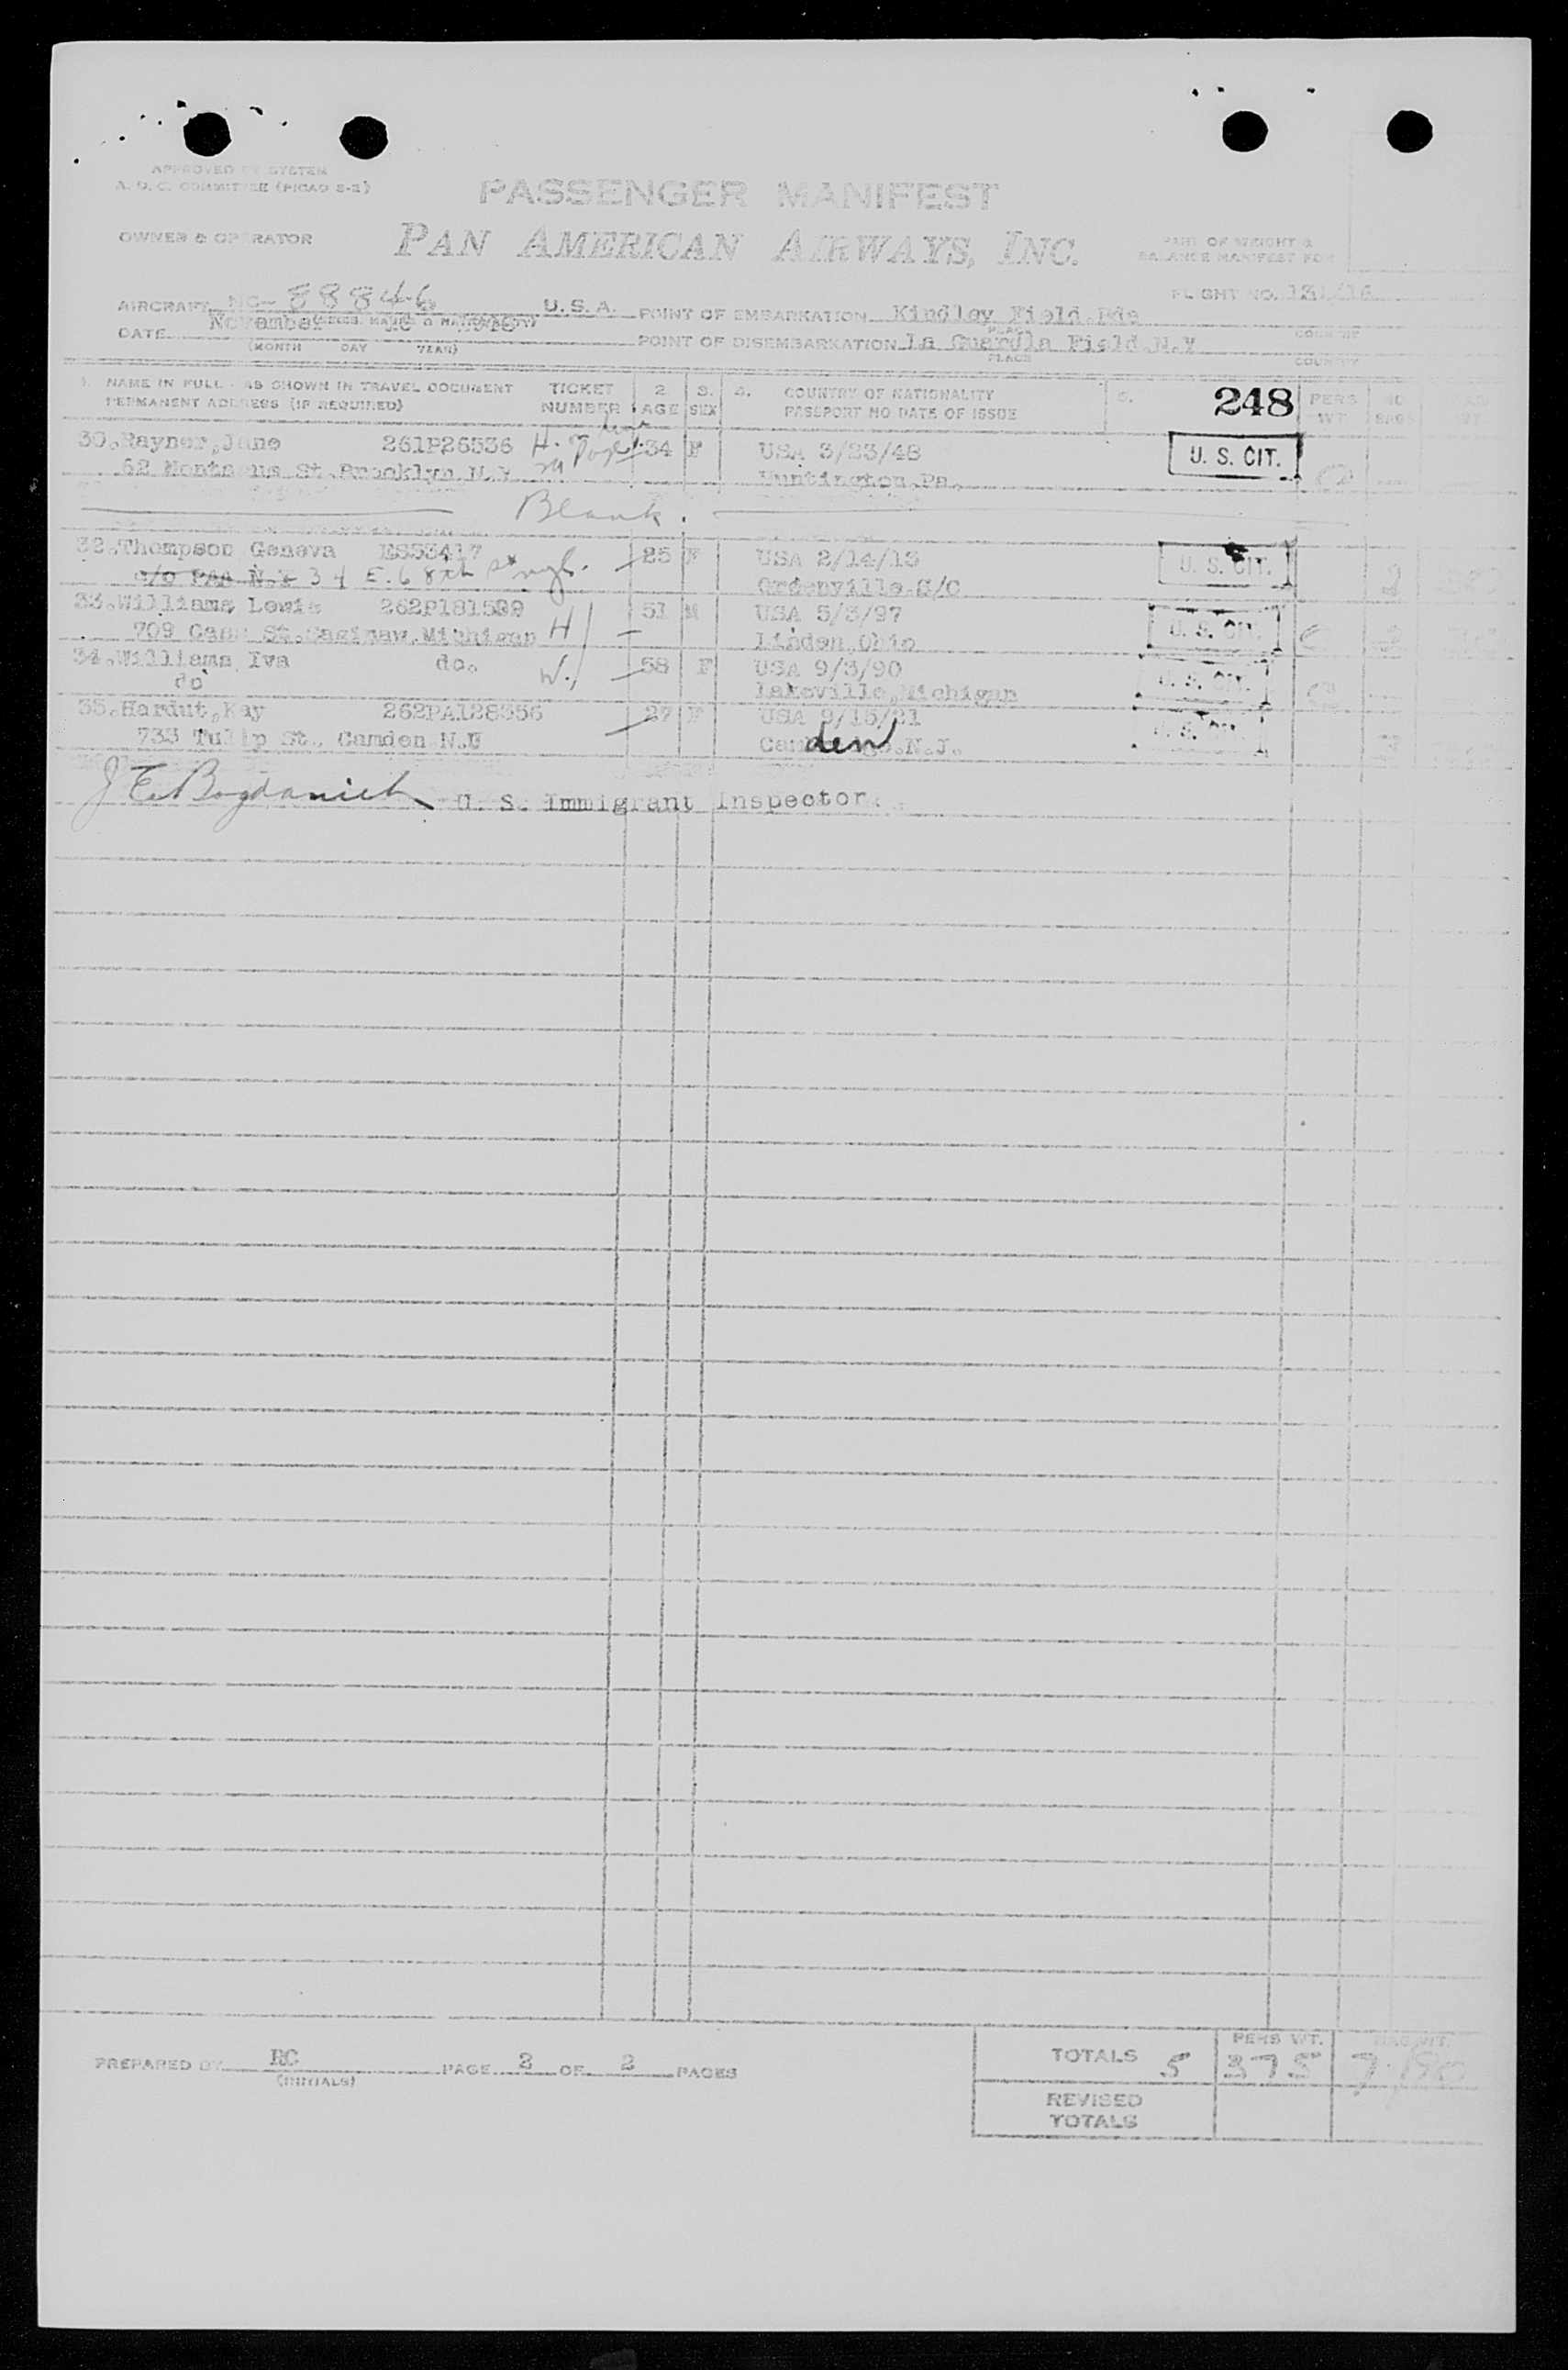 APPROVED BY SYSTEM
A. O. C. COMMITTEE (PICAO 2-2)
PASSENGER MANIFEST
OWNER & OPERATOR PAN AMERICAN AIRWAYS, INC.
PART OF WEIGHT &
BALANCE MANIFEST FOR
FLIGHT NO.
AIRCRAFT NC- 88846 U. S. A. POINT OF EMBARKATION Kindley Field, Bda
PLACE COUNTRY
DATE November
(MONTH DAY YEAR)
POINT OF DISEMBARKATION La Guardia Field N.Y
PLACE COUNTRY
1. NAME IN FULL - AS SHOWN IN TRAVEL DOCUMENT
PERMANENT ADDRESS (IF REQUIRED)
TICKET NUMBER
2. AGE
3. SEX
4. COUNTRY OF NATIONALITY
PASSPORT NO DATE OF ISSUE
5.
248
PERS WT.
30.Rayner,Jane 261P26536 34 F USA 3/23/48 U. S. CIT.
62 St.Brooklyn.N.Y Huntington.Pa.
Blank.
32.Thompson Geneva MS53417 25 F USA 2/14/13 U. S. CIT.
c/o PAA N.Y 34 E. 68th St nyc. Greenville.S/C
33.Williams Lewis 51 M USA 5/3/97 U. S. CIT.
709 St.Saginaw.Michigan H Linden,Ohio
34.Williams Iva do. W. 58 F USA 9/3/90 U. S. CIT.
do Lakeville,Michigan
35.Hardut,Kay 262PA128356 27 F USA 9/15/21 U. S. CIT.
733 Tulip St. Camden N.J den N.J.
J E Bogdanich U. S. Immigrant Inspector.
PREPARED BY RC
(INITIALS)
PAGE 2 OF 2 PAGES
PERS WT. BAG WT.
TOTALS 5 375
REVISED
TOTALS